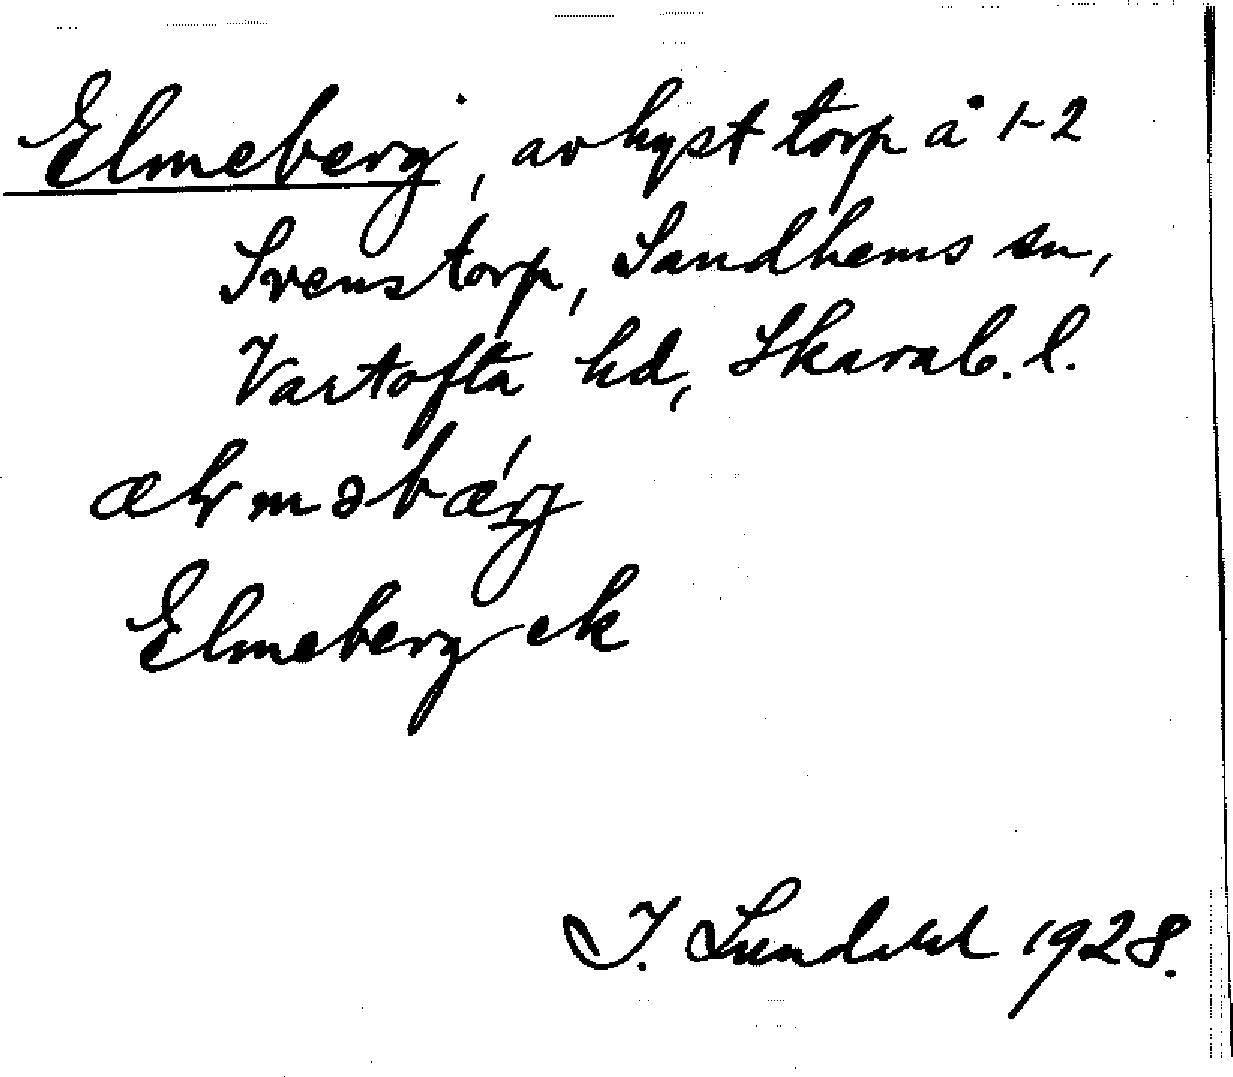 Elmeberg, avhyst torp å 1-2
Svenstorp, Sandhems sn,
Vartofta hd, Skarab. l.
Elmeberg ek
I. Lundahl 1928.